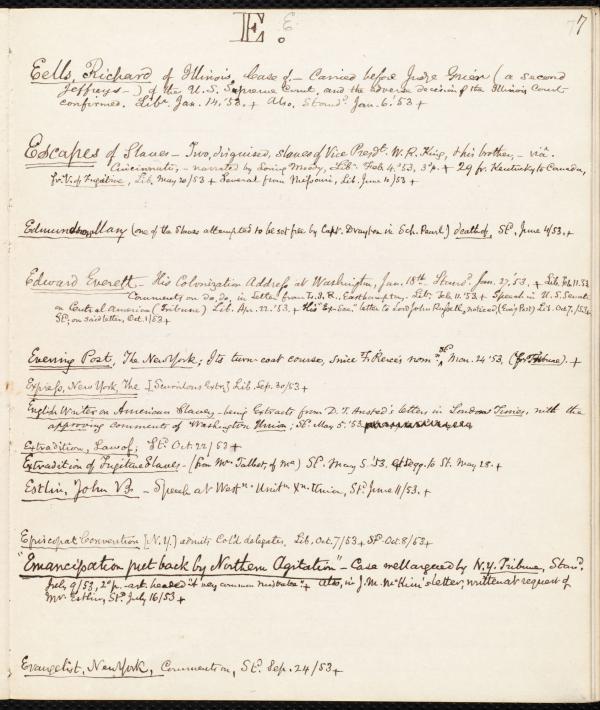 E. E 7 7
Eells, Richard of Illinois, Case of. – Carried before Judge Grier (a second
Jeffreys –) of the U.S. Supreme Court, and the adverse decision of the Illinois Court
confirmed. Libr. Jan. 14, '53. + Also, Standd. Jan. 6. '53 +
Escapes of Slaves – Two, disguised, slaves of Vice Presdt. W. R. King, & his brother, – viâ
Cincinnati, – narrated by Loring Moody, Libr. Feb. 4, '53, 3d p. + 29 fr. Kentucky to Canada,
fr. V. of Fugitive, Lib. May 20/53 + Several from Missouri, Lib. June 10/53 +
Edmundson, Mary (one of the Slaves attempted to be set free by Capt. Drayton in Sch. Pearl) death of, Sd. June 4/53. +
Edward Everett – His Colonization Address at Washington, Jan. 18th Standd. Jan. 27, '53. + Lib. Feb. 11. 53
Comments on do. do. in Letter from D. S. R., Easthampton. Libr. Feb. 11. '53 + Speech in U.S. Senate
on Central America (Tribune) Lib. Apr. 22. '53. + His letter to Lord John Russell, noticed (Eve'g Post) Lib. Oct. 7, /53 +
Sd., on said letter, Oct. 1/53 +
Evening Post, The New York; Its turn-coat course, since Fr. Pierce's nomn. Sd. Mar. 24 '53, (fr. Tribune). +
Express, New York, The [Scurrilous Extr.] Lib. Sep. 30/53 +
English Writer on American Slavery – being Extracts from D. T. Ansted's letters in London Times, with the
approving comments of Washington Union; Sd. May 5. '53
Extradition, Law of; Std. Oct. 22/53 +
Extradition of Fugitive Slaves – (from Mr. Talbot, of Me.) Sd. May 5. '53. & Segq. to St. May 28. +
Estlin, John B. – Speech at Westn. Unitn. Xn. Union, Std. June 11/53. +
Episcopal Convention [N.Y.] admits Cold delegates, Lib. Oct. 7/53 + Sd. Oct. 8/53 +
"Emancipation put back by Northern Agitation" – Case well argued by N.Y. Tribune, Standd.
July 9/53, 2d p. art. headed "A very common mistake" + Also, in J. M. McKim's letter, written at request of
Mr. Estlin, Std. July 16/53 +
Evangelist, New York, Comments on, Std. Sep. 24/53 +